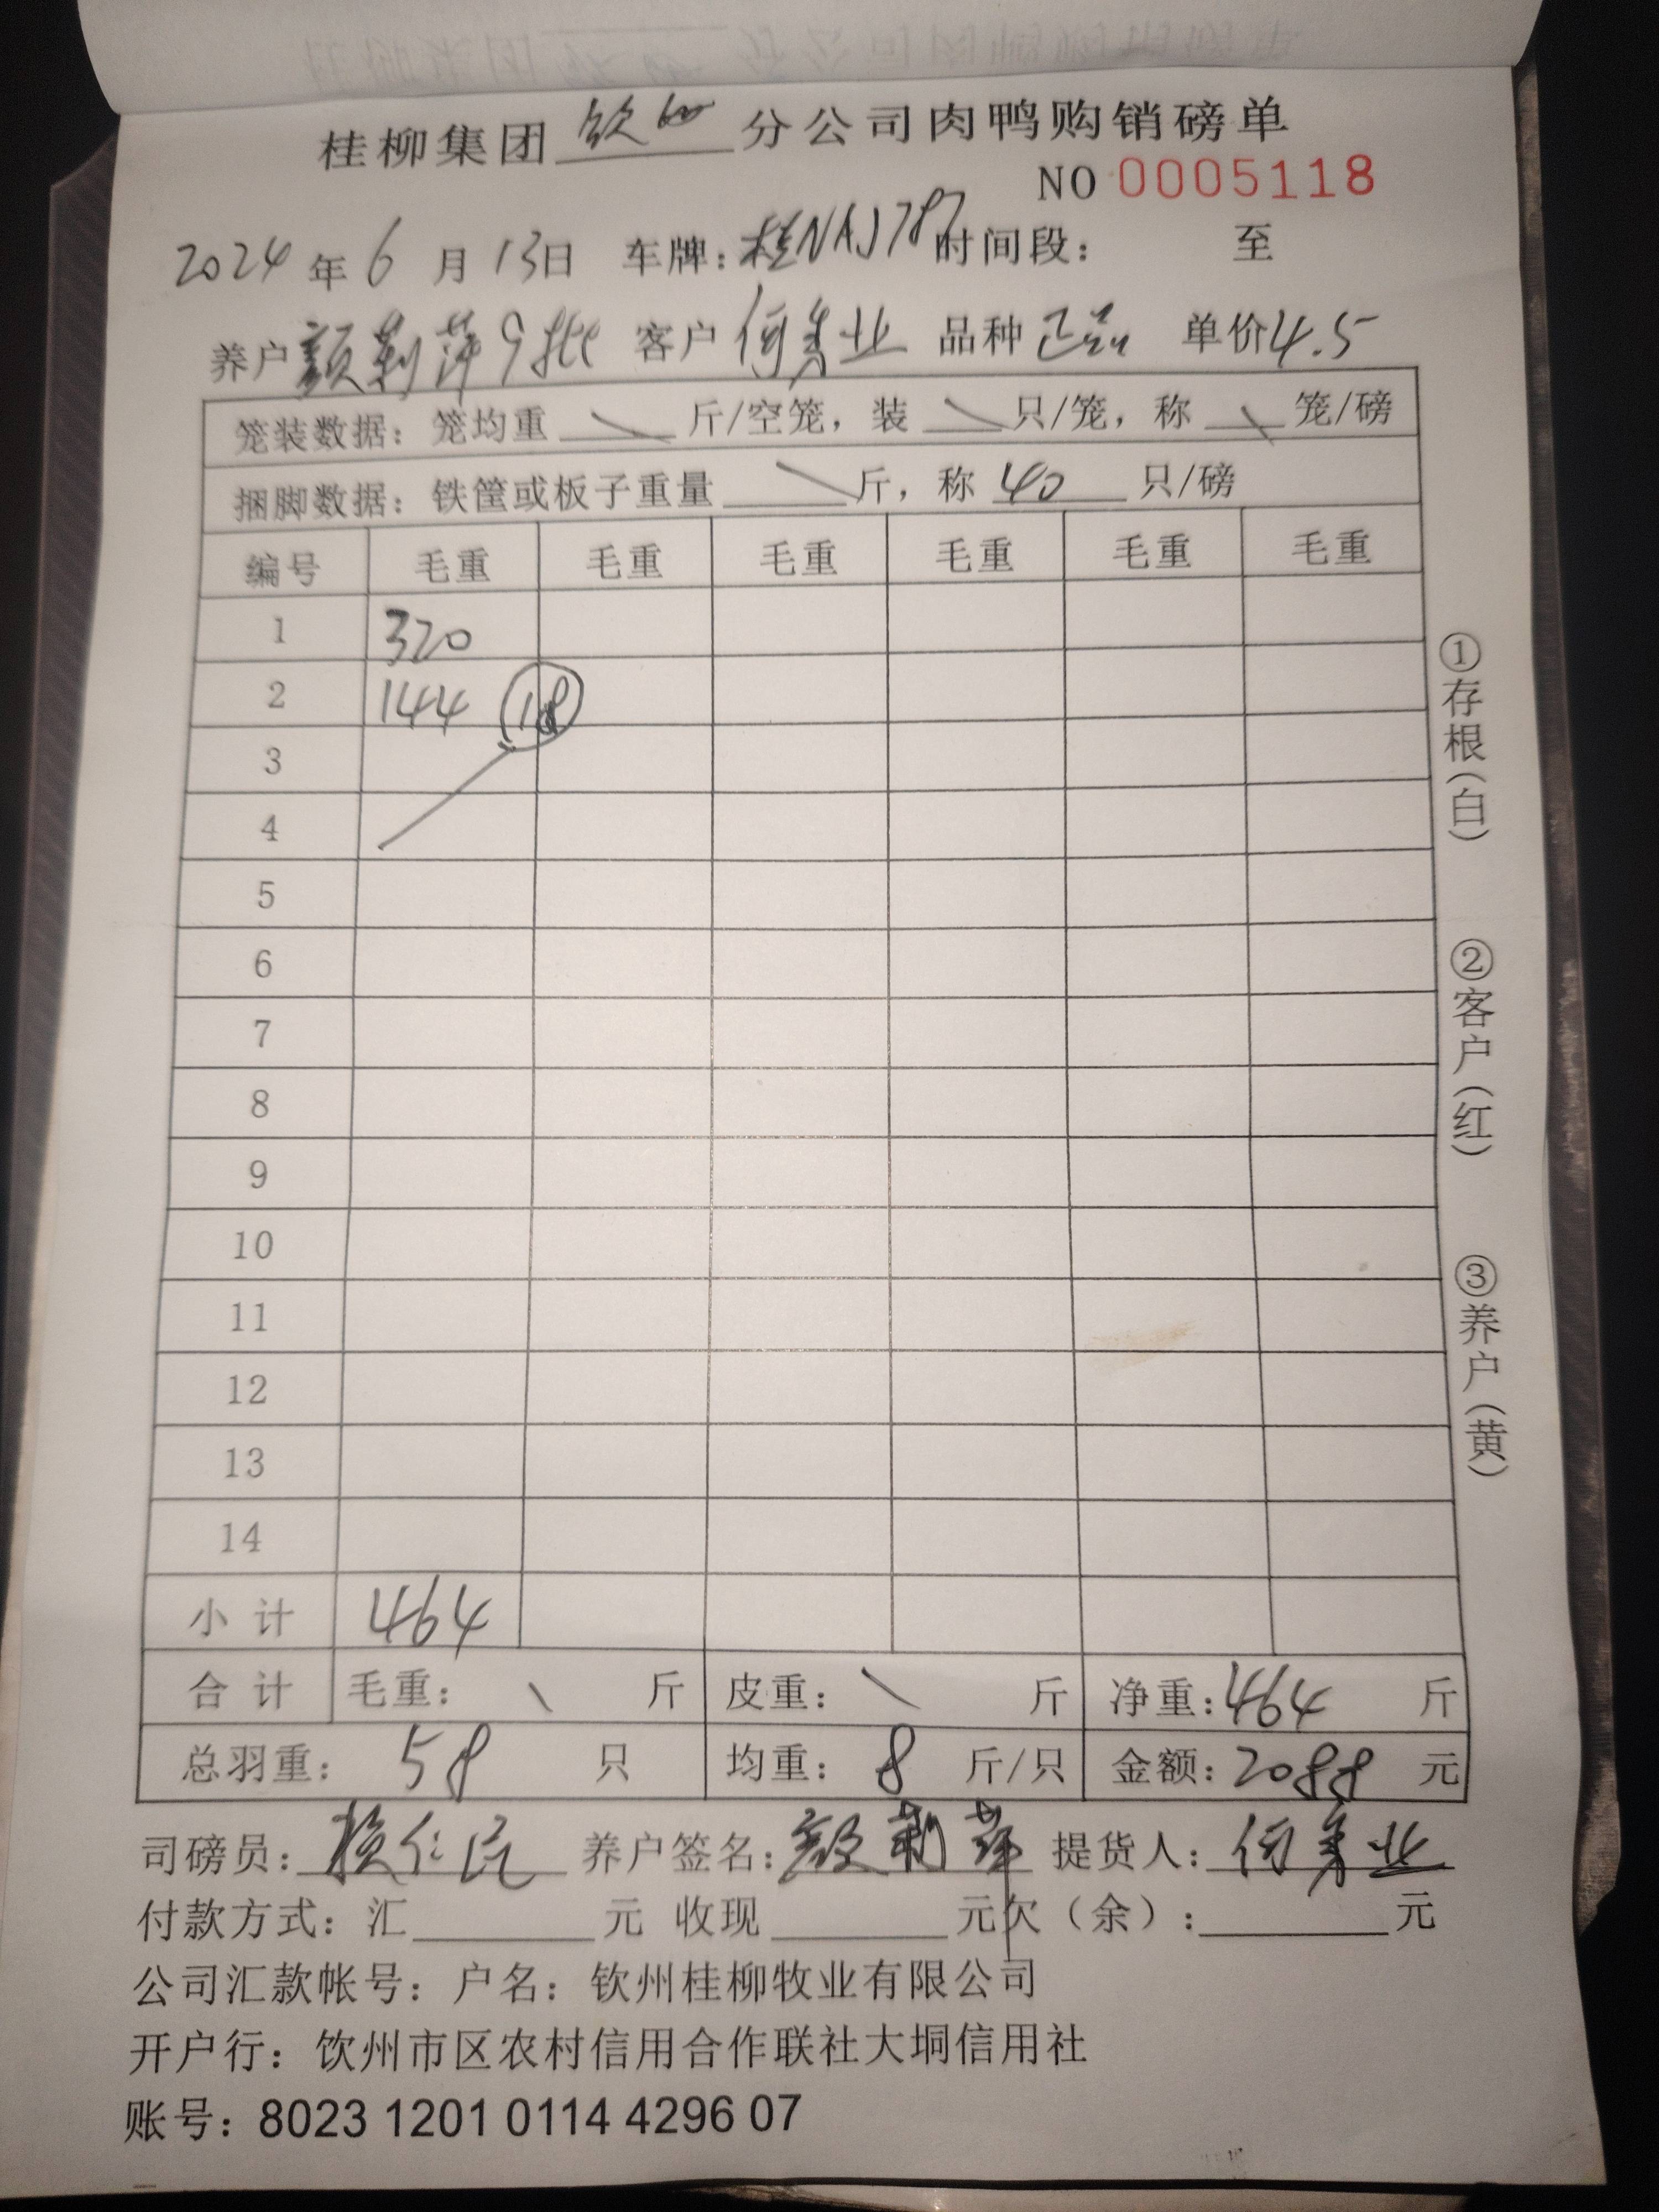 桂柳集团 钦州 分公司肉鸭购销磅单
NO 0005118
2024 年 6 月 13日 车牌：桂NAJ787 时间段： 至
养户 颜莉萍 9批 客户 何寿业 品种 正品 单价 4.5
笼装数据：笼均重 \ 斤/空笼，装 \ 只/笼，称 \ 笼/磅
捆脚数据：铁筐或板子重量 \ 斤，称 40 只/磅
编号 毛重 毛重 毛重 毛重 毛重 毛重
1 320
2 144 18
3
4
5
6
7
8
9
10
11
12
13
14
小计 464
合计 毛重： \ 斤 皮重： \ 斤 净重：464 斤
总羽重： 58 只 均重： 8 斤/只 金额：2088 元
司磅员： 养户签名：颜莉萍 提货人：何寿业
付款方式：汇 元 收现 元欠（余）： 元
公司汇款帐号：户名：钦州桂柳牧业有限公司
开户行：饮州市区农村信用合作联社大垌信用社
账号：8023 1201 0114 4296 07
①存根（白）
②客户（红）
③养户（黄）